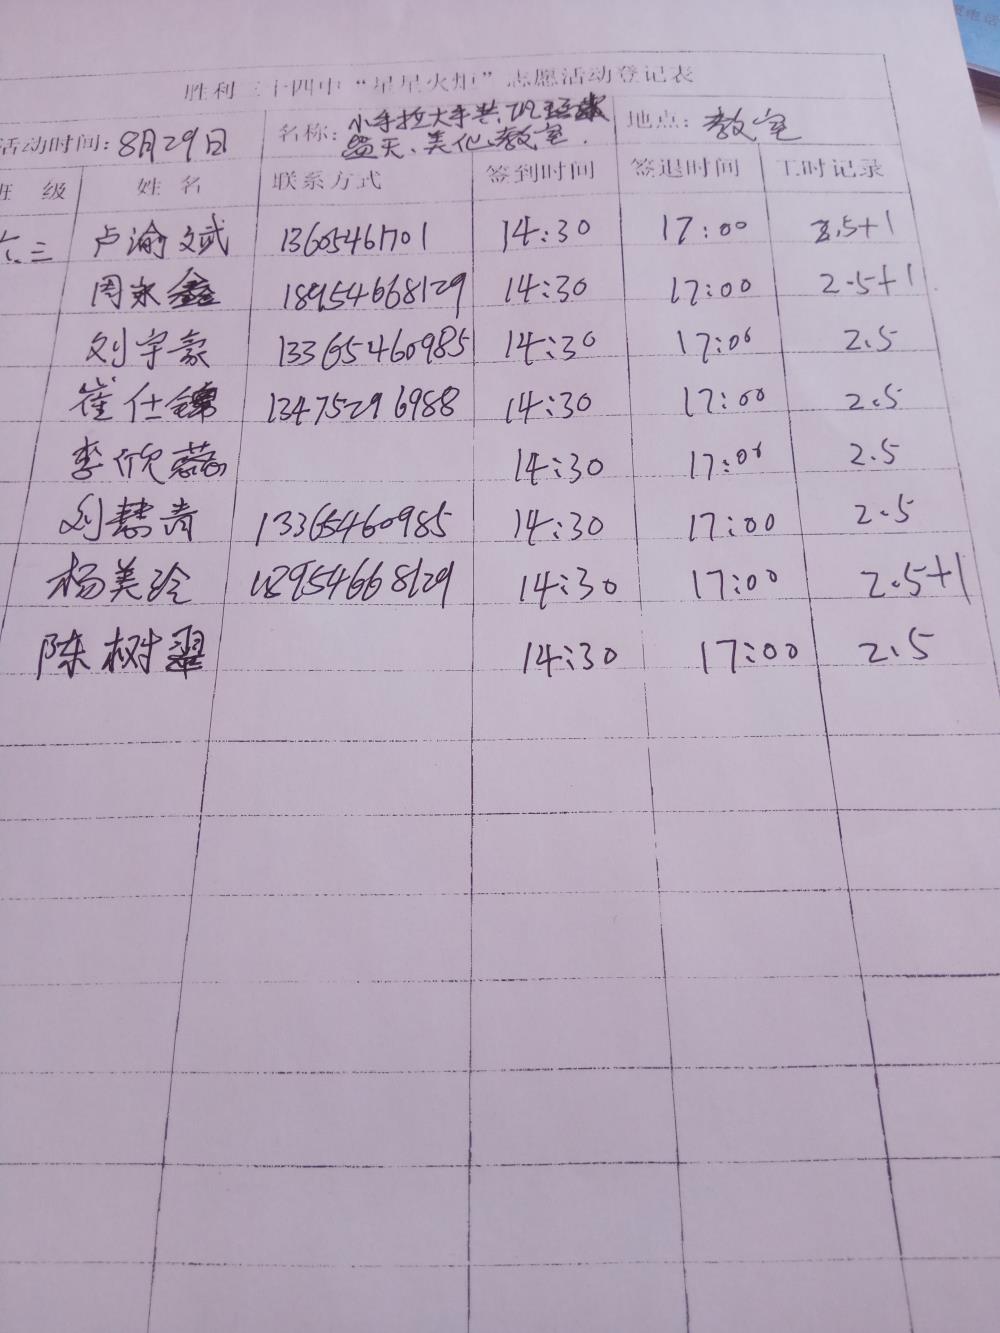 胜利三十四中“星星火炬”志愿活动登记表
活动时间:8月29日 名称:小手拉大手共 地点:教室
蓝天、美化教室.
班 级 姓 名 联系方式 签到时间 签退时间 工时记录
六.三 卢渝斌 13605461701 14:30 17:00 2.5+1
周永鑫 18954668129 14:30 17:00 2.5+1
刘宇豪 13365460985 14:30 17:00 2.5
崔仕锦 13475296988 14:30 17:00 2.5
李欣蕊 14:30 17:00 2.5
刘慧青 13365460985 14:30 17:00 2.5
杨美玲 18954668129 14:30 17:00 2.5+1
陈树翠 14:30 17:00 2.5